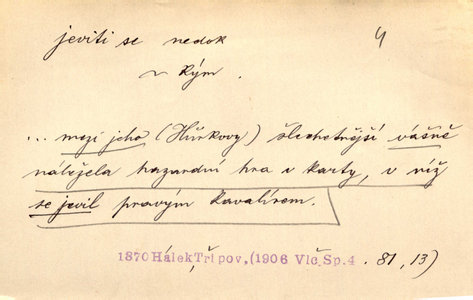 jeviti se nedok 4
~ kým.
... mezi jeho (Hůrkovy) šlechetnější vášně
náležela hazardní hra v karty, v níž
se jevil pravým kavalírem.
1870 Hálek Tři pov. (1906 Vlč. Sp. 4 . 81, 13)